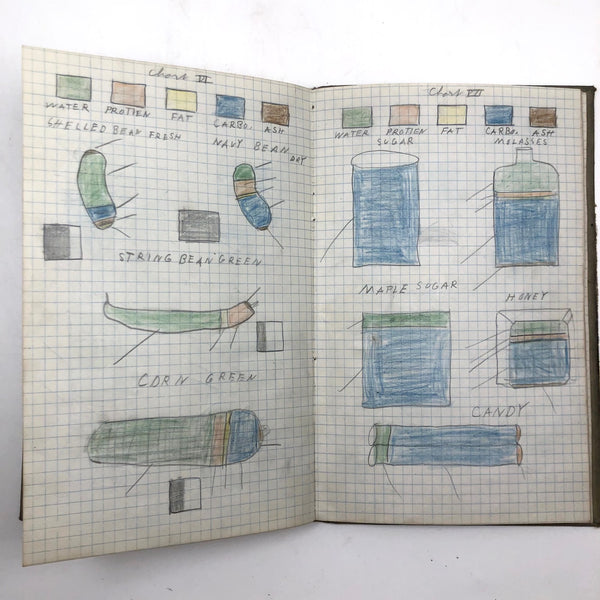 Chart VI
WATER PROTIEN FAT CARBO. ASH
SHELLED BEAN FRESH
NAVY BEAN DRY
STRING BEAN GREEN
CORN GREEN
Chart VII
WATER PROTIEN FAT CARBO. ASH
SUGAR MOLASSES
MAPLE SUGAR
HONEY
CANDY